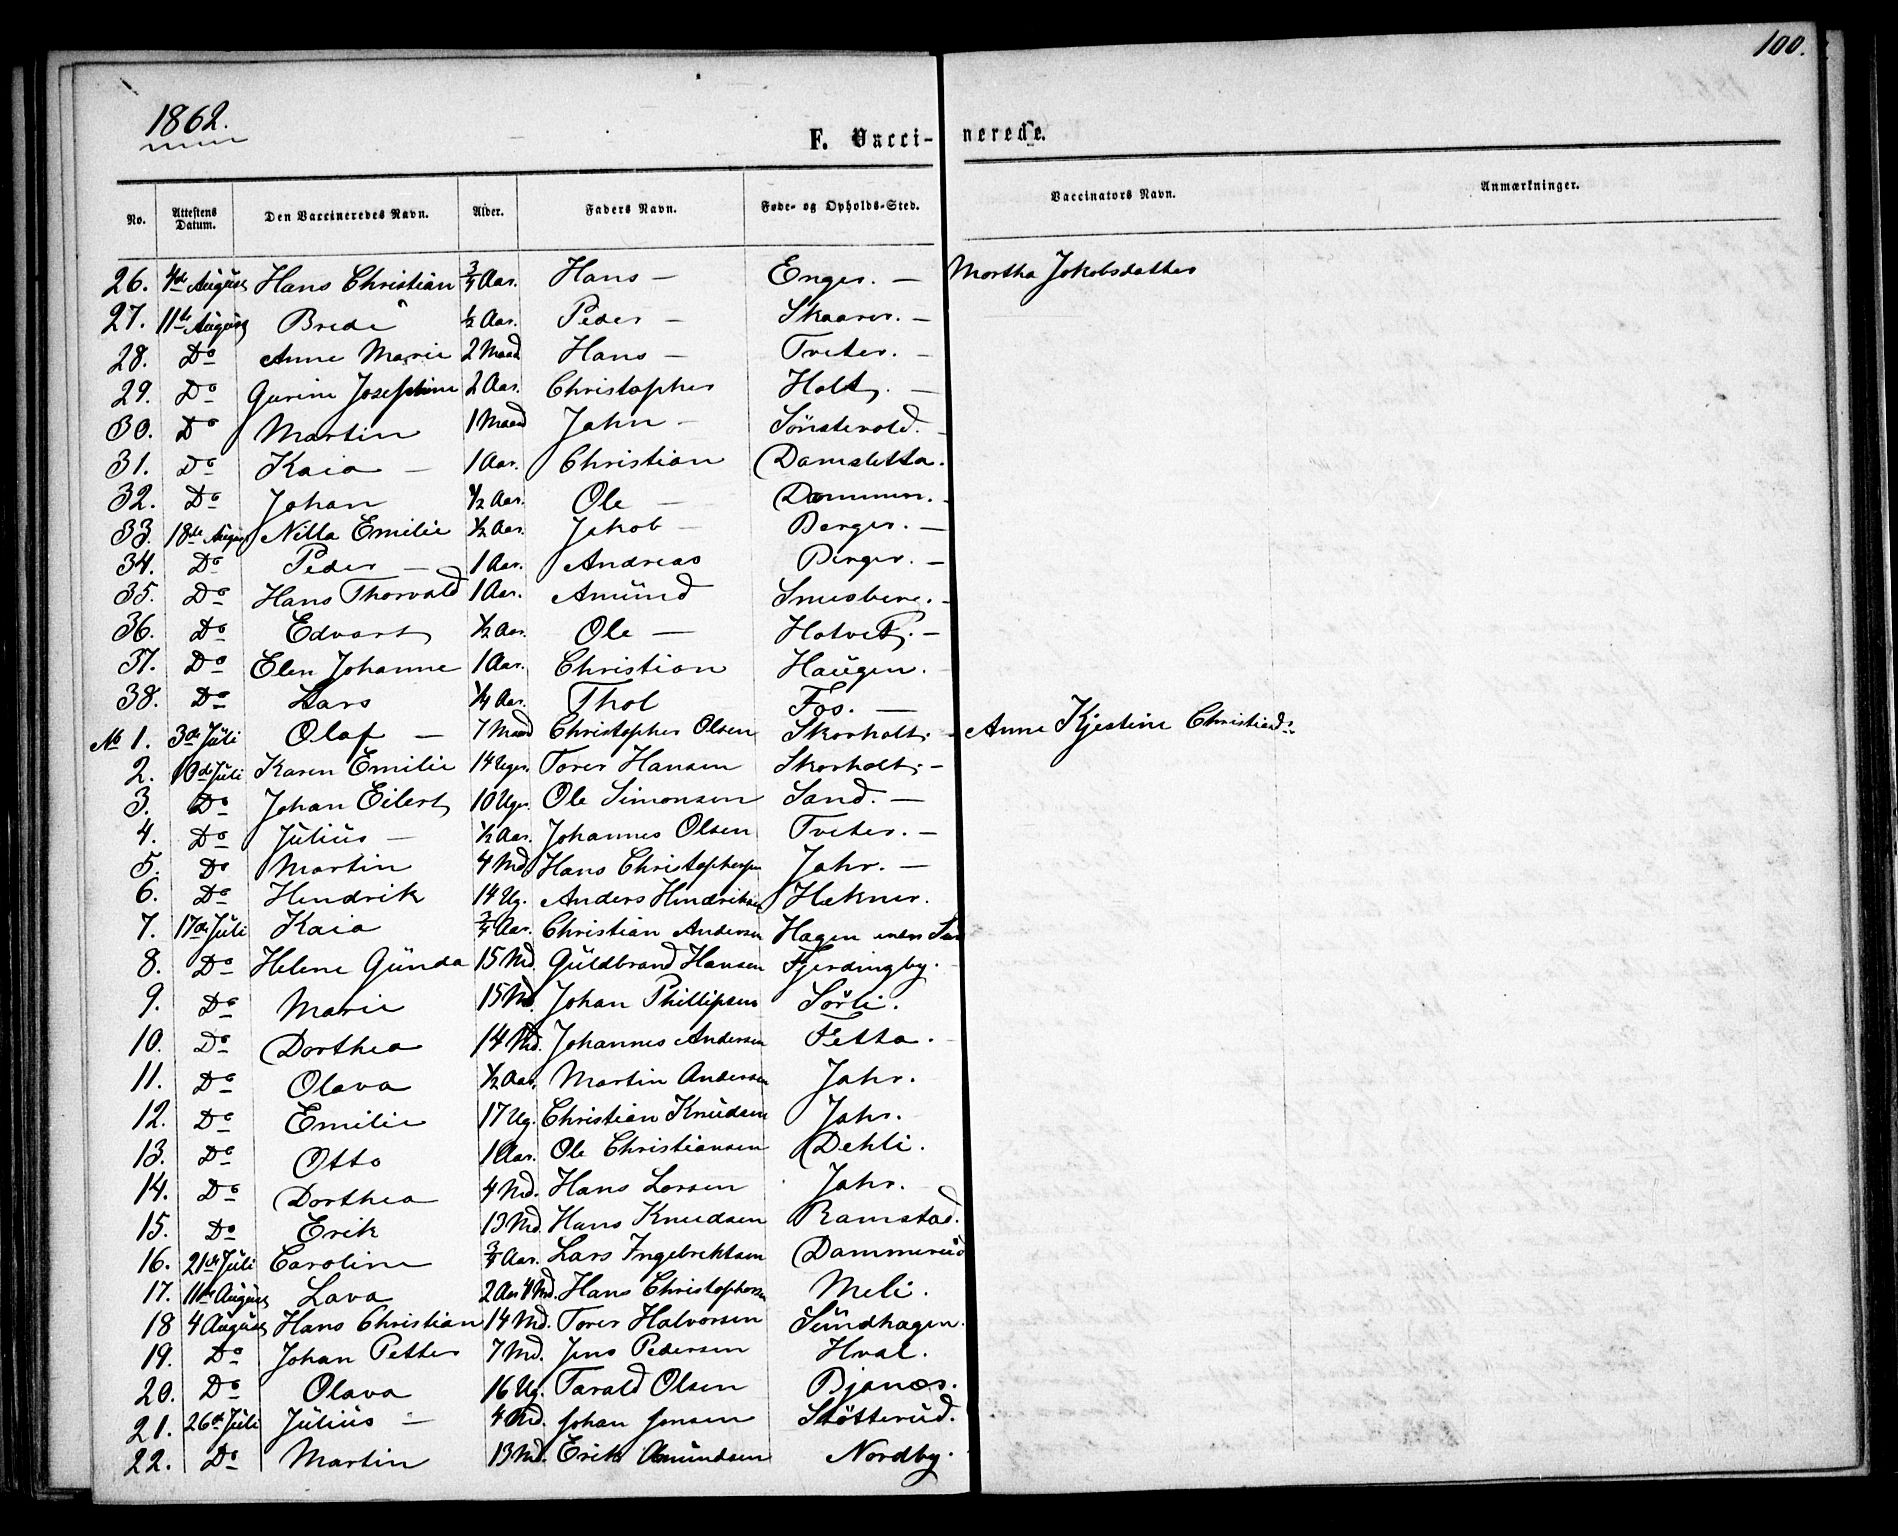 100.
1862.
F. Vaccinerede.
No. Attestens Datum. Den Vaccineredes Navn. Alder. Faders Navn. Føde- og Opholds-Sted. Vaccinators Navn. Anmærkninger.
26. 4de August Hans Christian 3/4 Aar. Hans — Enger. — Martha Jakobsdatter
27. 11te August Brede ½ Aar. Peder — Skaarer. —
28. Do Anne Marie 2 Maad Hans — Tveter. —
29. Do Gurine Josephine 2 Aar. Christopher Holt. —
30. Do Martin 1 Maad John — Sönstevold. —
31. Do Kaia — 1 Aar. Christian Damsletta.
32. Do Johan ½ Aar. Ole — Dammen. —
33. 18de August Nilla Emilie ½ Aar. Jakob — Berger. —
34. Do Peder — 1 Aar. Andreas Berger. —
35. Do Hans Thorvald 1 Aar. Amünd —
36. Do Edvart ½ Aar. Ole — Hotvet. —
37. Do Elen Johanne 1 Aar. Christian Haugen. —
38. Do Lars ¼ Aar. Thol Fos. —
No 1. 3de Juli Olaf — 7 Maad Christopher Olsen Skorholt. — Anne Kjestine Christiansd:
2. 10de Juli Karen Emilie 14 Uger. Torer Hansen Skorholt. —
3. Do Johan Eilert 10 Uger. Ole Simonsen Sand. —
4. Do Julius — ½ Aar. Johannes Olsen Tveter. —
5. Do Martin 4 Md Hans Christophersen Jahr. —
6. Do Hendrik 14 Ug. Anders Hendriksen Hækner.
7. 17de Juli Kaia 3/4 Aar. Christian Andersen Hagen
8. Do Helene Günda 15 Md. Guldbrand Hansen Fjerdingby.
9. Do Marie 15 Md. Johan Phillipsen Sörli.
10. Do Dorthea 14 Md. Johannes Andersen Tetta.
11. Do Olava ½ Aar. Martin Andersen Jahr.
12. Do Emilie 17 Ug. Christian Knudsen Jahr.
13. Do Otto 1 Aar. Ole Christiansen Dehli.
14. Do Dorthea 4 Md. Hans Larsen Jahr.
15. Do Erik 13 Md. Hans Knudsen Ramstad.
16. 21de Juli Caroline 3/4 Aar. Lars Ingebrektsen Dammerud
17. 11te August Lava 2 Aar 4 Md. Hans Christophersen Meli.
18 4 August Hans Christian 14 Md. Torer Halvorsen Sundhagen.
19. Do Johan Petter 7 Md. Jens Pedersen Hval.
20. Do Olava 16 Ug. Tarald Olsen Bjanæs.
21. 26de Juli Julius — 4 Md. Johan Jonsen Stötterud.
22. Do Martin 13 Md. Erik Amundsen Nordby.